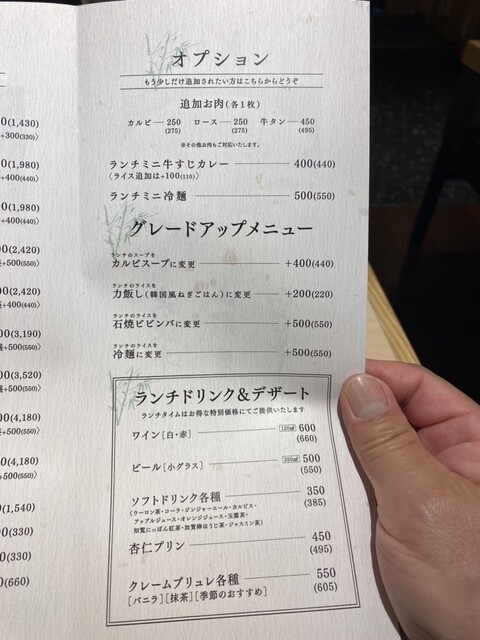 0(1,430)
+300(330)〉
0(1,980)
+400(440)〉
0(1,980)
+400(440)〉
0(2,420)
+500(550)〉
0(2,420)
+400(440)〉
0(3,190)
+500(550)〉
0(3,520)
+500(550)〉
0(4,180)
+500(550)〉
0(4,180)
+500(550)〉
0(1,540)
0(330)
0(330)
0(660)
オプション
もう少しだけ追加されたい方はこちらからどうぞ
追加お肉(各1枚)
カルビ 250 ロース 250 牛タン 450
(275) (275) (495)
※その他お肉もご対応いたします。
ランチミニ牛すじカレー 400(440)
〈ライス追加は+100(110)〉
ランチミニ冷麺 500(550)
グレードアップメニュー
ランチのスープを
カルビスープに変更 +400(440)
ランチのライスを
力飯し(韓国風ねぎごはん)に変更 +200(220)
ランチのライスを
石焼ビビンバに変更 +500(550)
ランチのライスを
冷麺に変更 +500(550)
ランチドリンク&デザート
ランチタイムはお得な特別価格にてご提供いたします
ワイン[白・赤] 120㎖ 600
(660)
ビール[小グラス] 260㎖ 500
(550)
ソフトドリンク各種 350
(ウーロン茶・コーラ・ジンジャーエール・カルピス・ (385)
アップルジュース・オレンジジュース・玉露茶・
知覧にっぽん紅茶・加賀棒ほうじ茶・ジャスミン茶)
杏仁プリン 450
(495)
クレームブリュレ各種 550
[バニラ][抹茶][季節のおすすめ] (605)